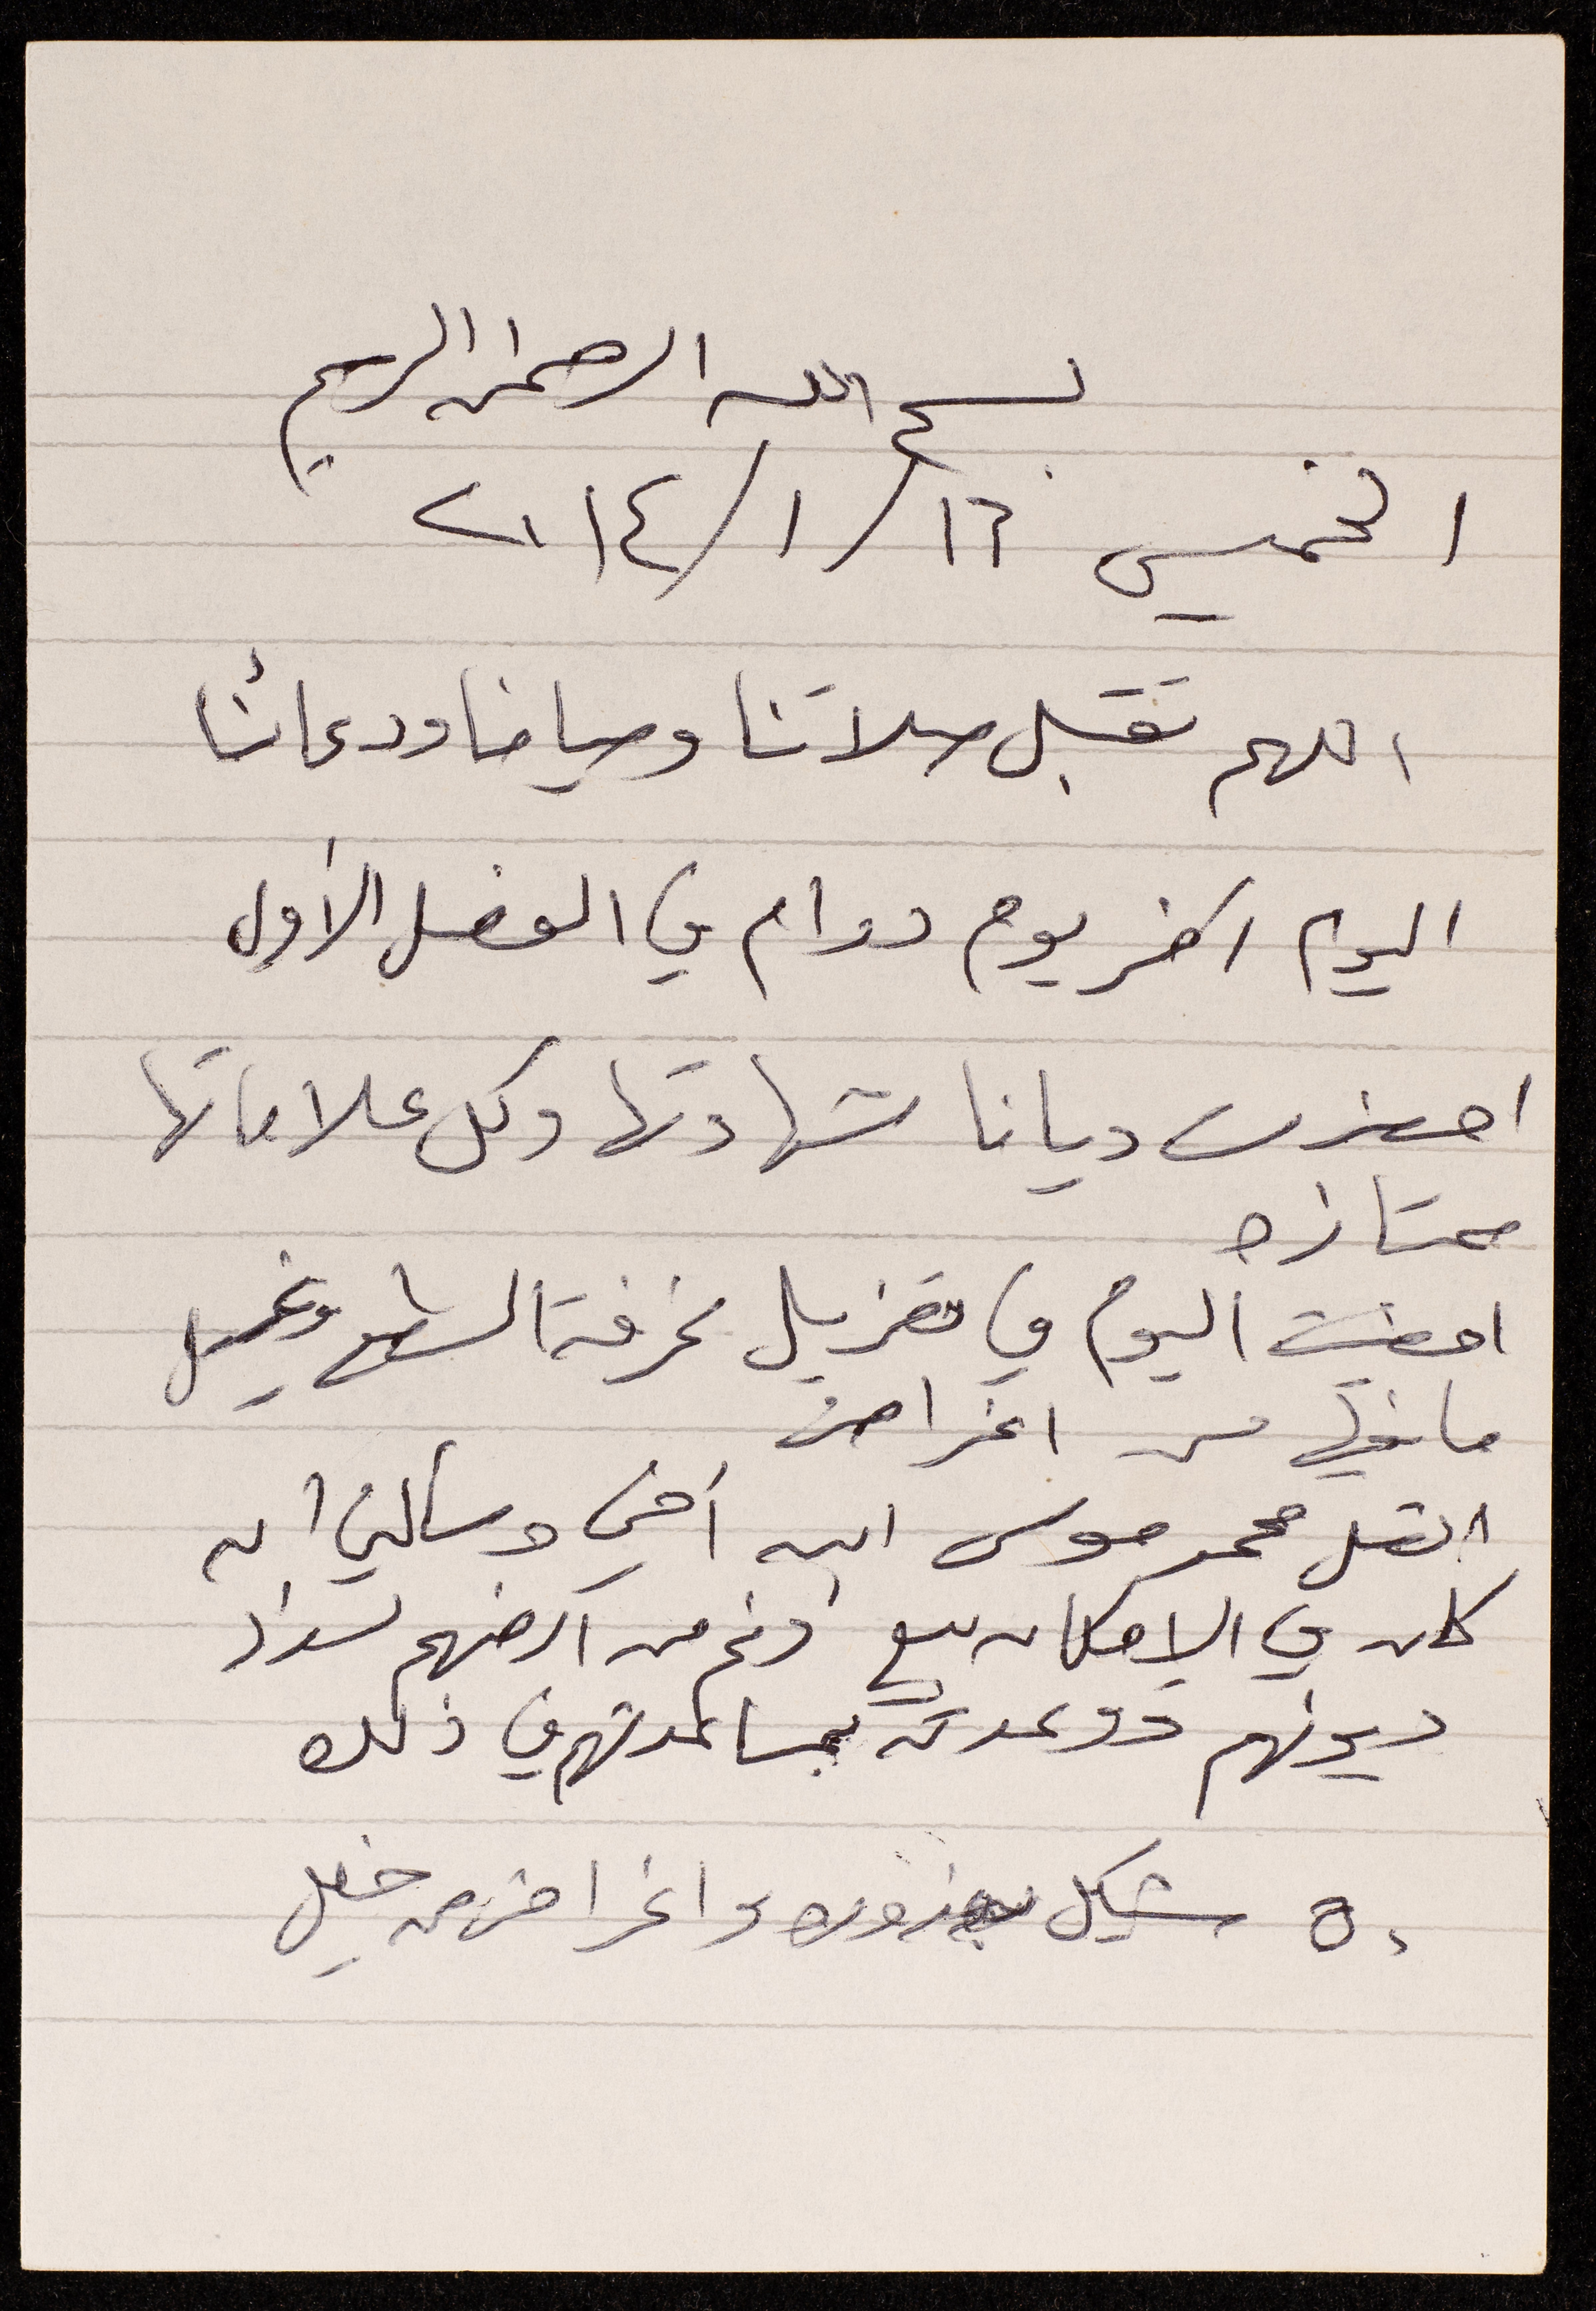 بسم الله الرحمن الرحيم
الخميس ١٦/١/٢٠١٤
اللهم تقبل صلاتنا وصيامنا ودعائنا
اليوم اخر يوم دوام في الفصل الأول
احضرت ديانا شهادتها وكل علاماتها
ممتازه
امضيت اليوم في تنزيل غرفة السطح وغسيل
ما فيها من اغراض
اتصل محمد موسى ابن أخي وسألني ان
كان في الامكان بيع دونم من ارضهم لسداد
ديونهم ووعدته بمساعدتهم في ذلك
٥٠ شيكل بندوره واغراض من خليل